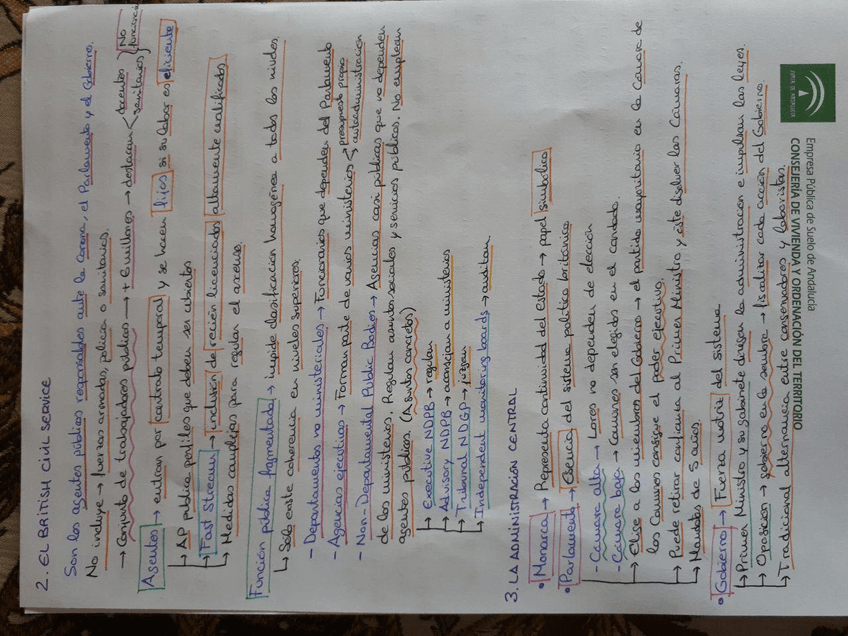 2. EL BRITISH CIVIL SERVICE
Son los agentes públicos responsables ante la Corona, el Parlamento y el Gobierno.
No incluye → fuerzas armadas, policía o sanitarios.
→ Conjunto de trabajadores públicos → + 6 millones → destacan < docentes sanitarios } No funcionarios
Ascensos → entran por contrato temporal y se hacen fijos si su labor es eficiente
→ AP publica perfiles que deben ser cubiertos
→ Fast Stream → inclusión de recién licenciados altamente cualificados.
→ Medidas complejas para regular el ascenso.
Función pública fragmentada → impide clasificación homogénea a todos los niveles.
→ Sólo existe coherencia en niveles superiores.
- Departamentos no ministeriales → Funcionarios que dependen del Parlamento
- Agencias ejecutivas → Forman parte de varios ministerios < presupuesto propio autoadministración
- Non-Departamental Public Bodies → Agencias casi públicas que no dependen
de los ministerios. Regulan asuntos sociales y servicios públicos. No emplean
agentes públicos. (Asuntos concretos)
→ Executive NDPB → regulan
→ Advisory NDPB → aconsejan a ministerios
→ Tribunal NDGP → juzgan
→ Independent monitoring boards → auditan.
3. LA ADMINISTRACIÓN CENTRAL
• Monarca → Representa continuidad del Estado → papel simbólico
• Parlamento → Esencia del sistema político británico
- Cámara alta → Lores no dependen de elección
- Cámara baja → Comunes son elegidos en el condado.
→ Elige a los miembros del Gobierno → el partido mayoritario en la Cámara de
los Comunes consigue el poder ejecutivo.
→ Puede retirar confianza al Primer Ministro y éste disolver las Cámaras.
→ Mandatos de 5 años
• Gobierno → Fuerza motriz del sistema
→ Primer Ministro y su gabinete dirigen la administración e impulsan las leyes.
→ Oposición → gobierno en la sombra → fiscalizar cada acción del Gobierno
→ Tradicional alternancia entre conservadores y laboristas.
JUNTA DE ANDALUCIA
Empresa Pública de Suelo de Andalucía
CONSEJERÍA DE VIVIENDA Y ORDENACIÓN DEL TERRITORIO